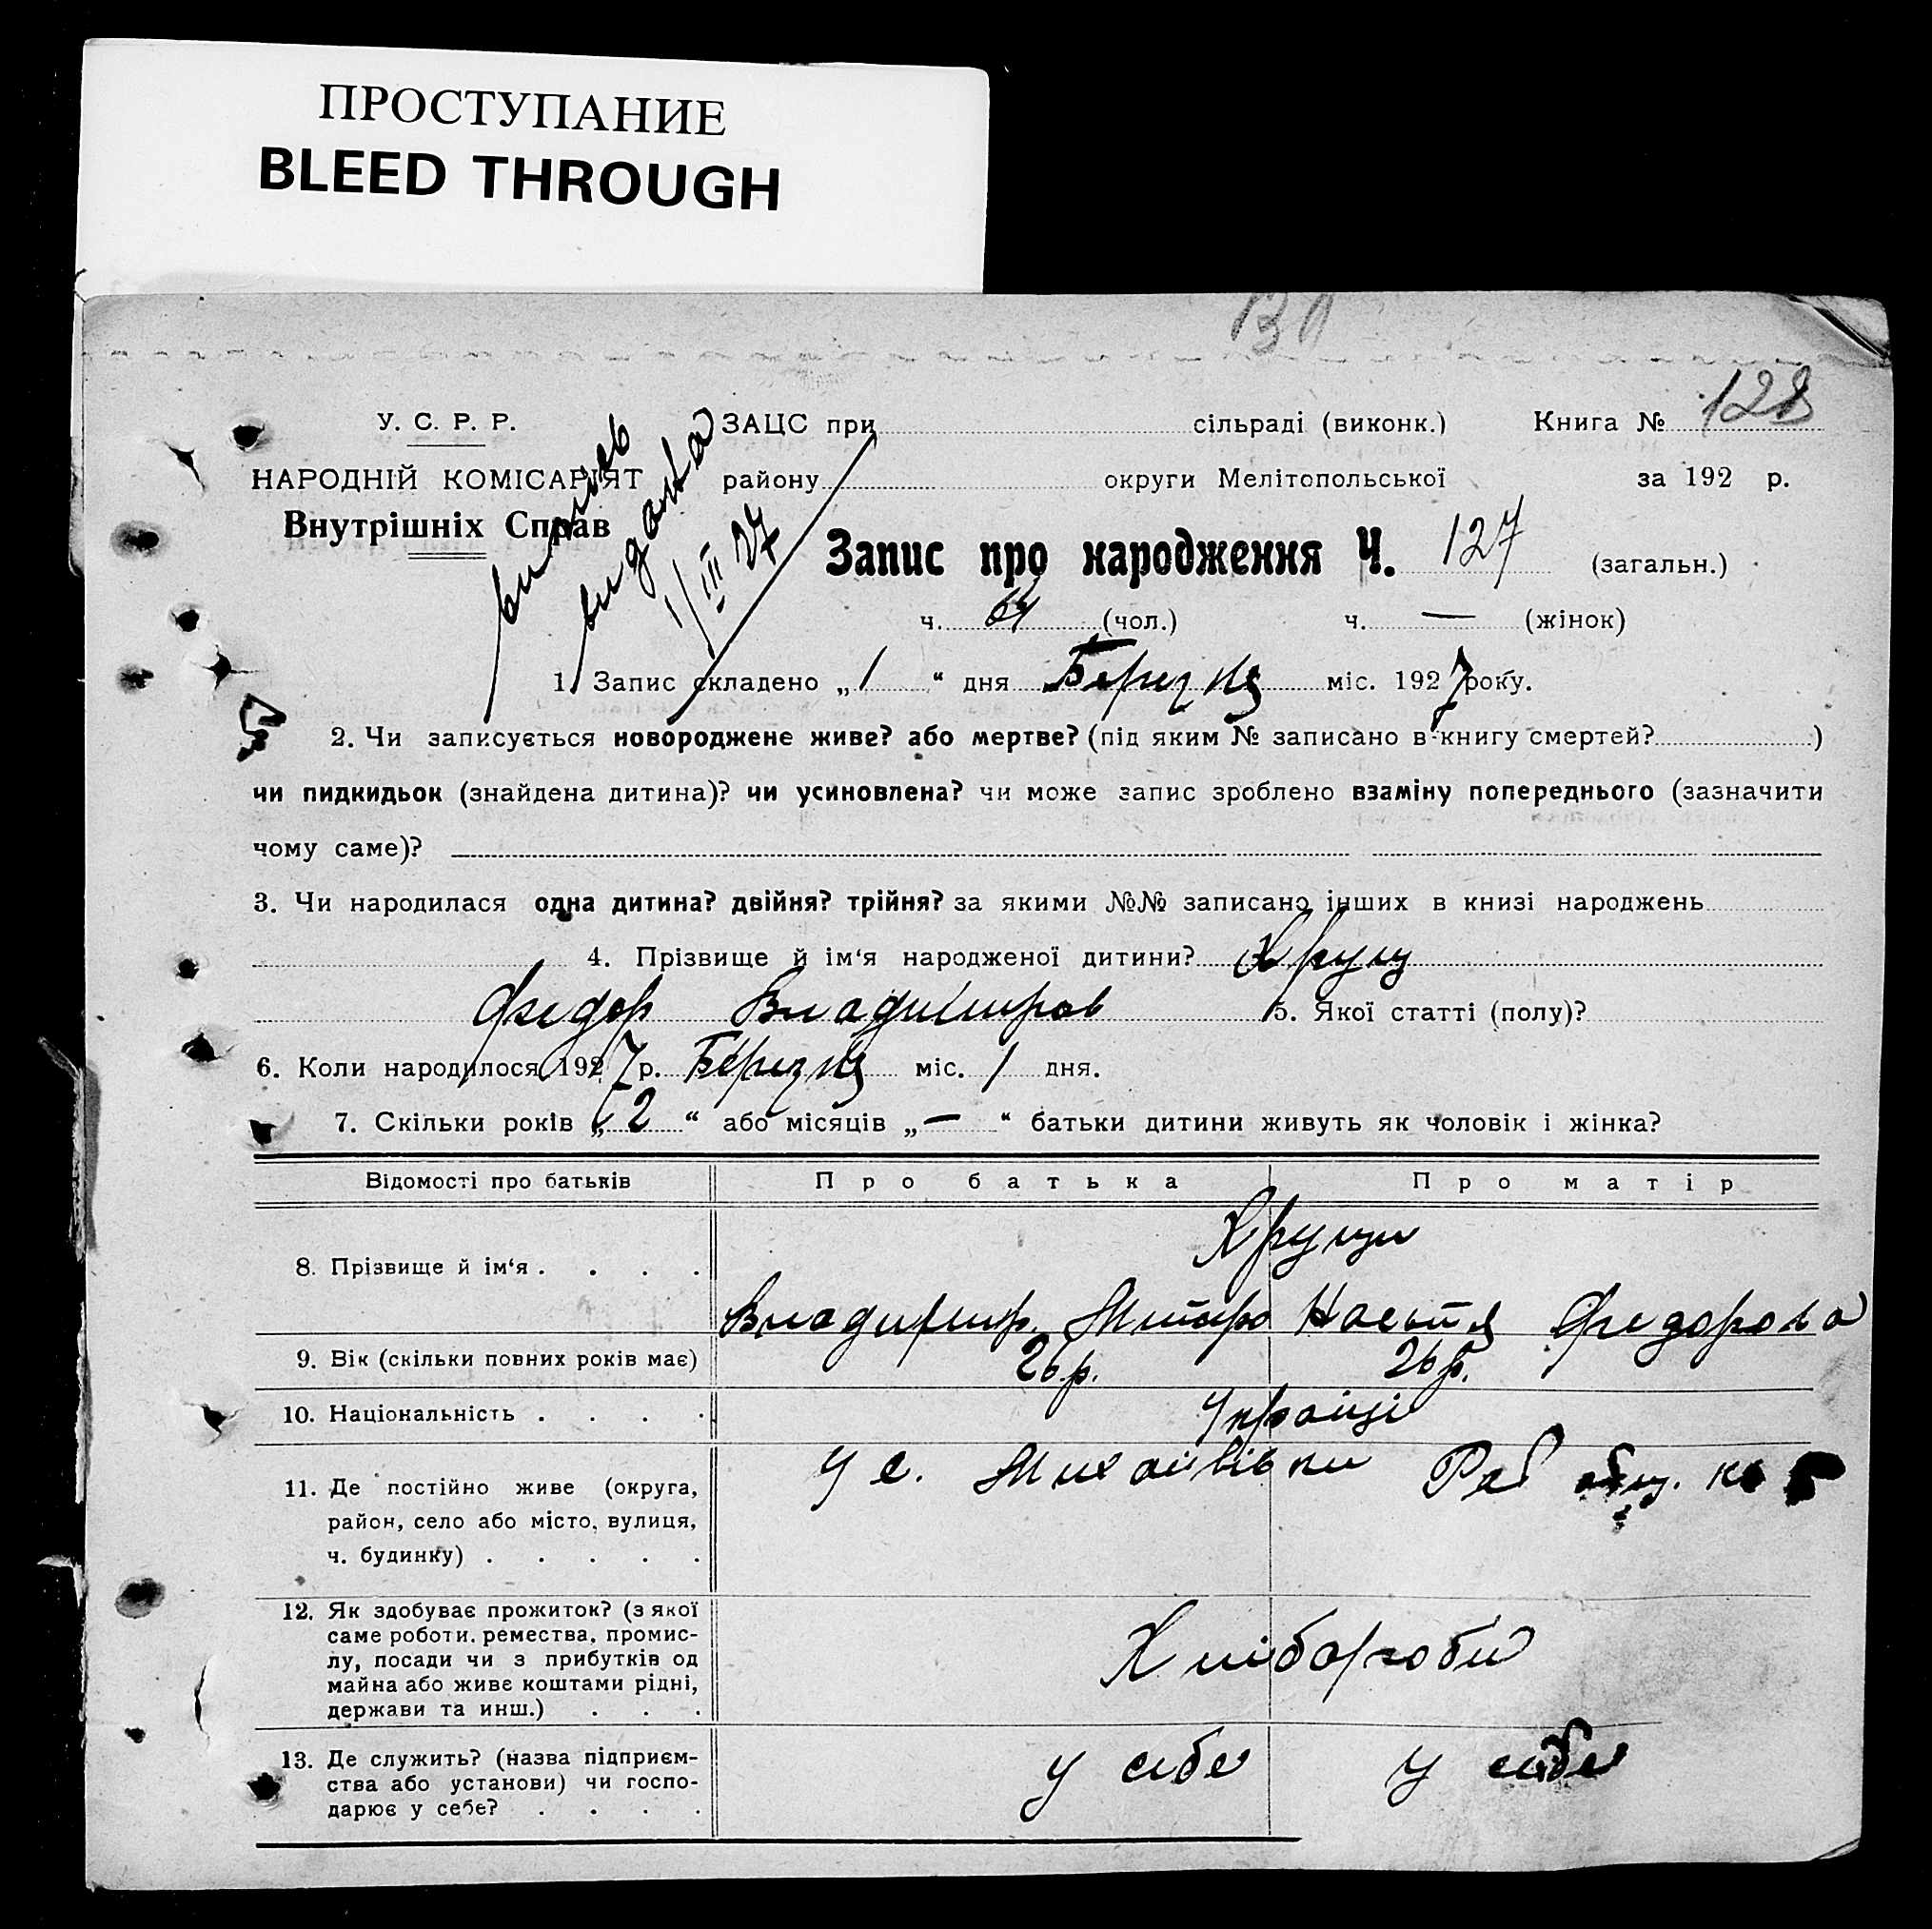 ПРОСТУПАНИЕ
BLEED THROUGH
130
У. С. Р. Р.
ЗАЦС при сільраді (виконк.) Книга № 128
НАРОДНІЙ КОМІСАРІЯТ
району округи Мелітопольської за 192 р.
Внутрішніх Справ
видана
1/III 27
Запис про народження Ч. 127 (загальн.)
ч. 64 (чол.) ч. — (жінок)
1. Запис складено „1“ дня Березня міс. 1927 року.
2. Чи записується новороджене живе? або мертве? (під яким № записано в книгу смертей? )
чи пидкидьок (знайдена дитина)? чи усиновлена? чи може запис зроблено взаміну попереднього (зазначити
чому саме)?
3. Чи народилася одна дитина? двійня? трійня? за якими №№ записано інших в книзі народжень
4. Прізвище й ім‘я народженої дитини? Хрущ
Федор Владимиров 5. Якої статті (полу)?
6. Коли народилося 1927 р. Березня міс. 1 дня.
7. Скільки років „2“ або місяців „—“ батьки дитини живуть як чоловік і жінка?
Відомості про батьків Про батька Про матір
Хрущи
8. Прізвище й ім‘я . . . .
Владимир Митро Настя Федорова
9. Вік (скільки повних років має) 26 р. 26 р.
10. Національність . . . . Україці
У с. Михайлівки
11. Де постійно живе (округа,
район, село або місто, вулиця,
ч. будинку) . . . . .
12. Як здобуває прожиток? (з якої
саме роботи, ремества, промис-
лу, посади чи з прибутків од
майна або живе коштами рідні,
держави та инш.) . . .
Хлібороби
13. Де служить? (назва підприєм-
ства або установи) чи госпо-
дарює у себе? . . . .
у себе у себе